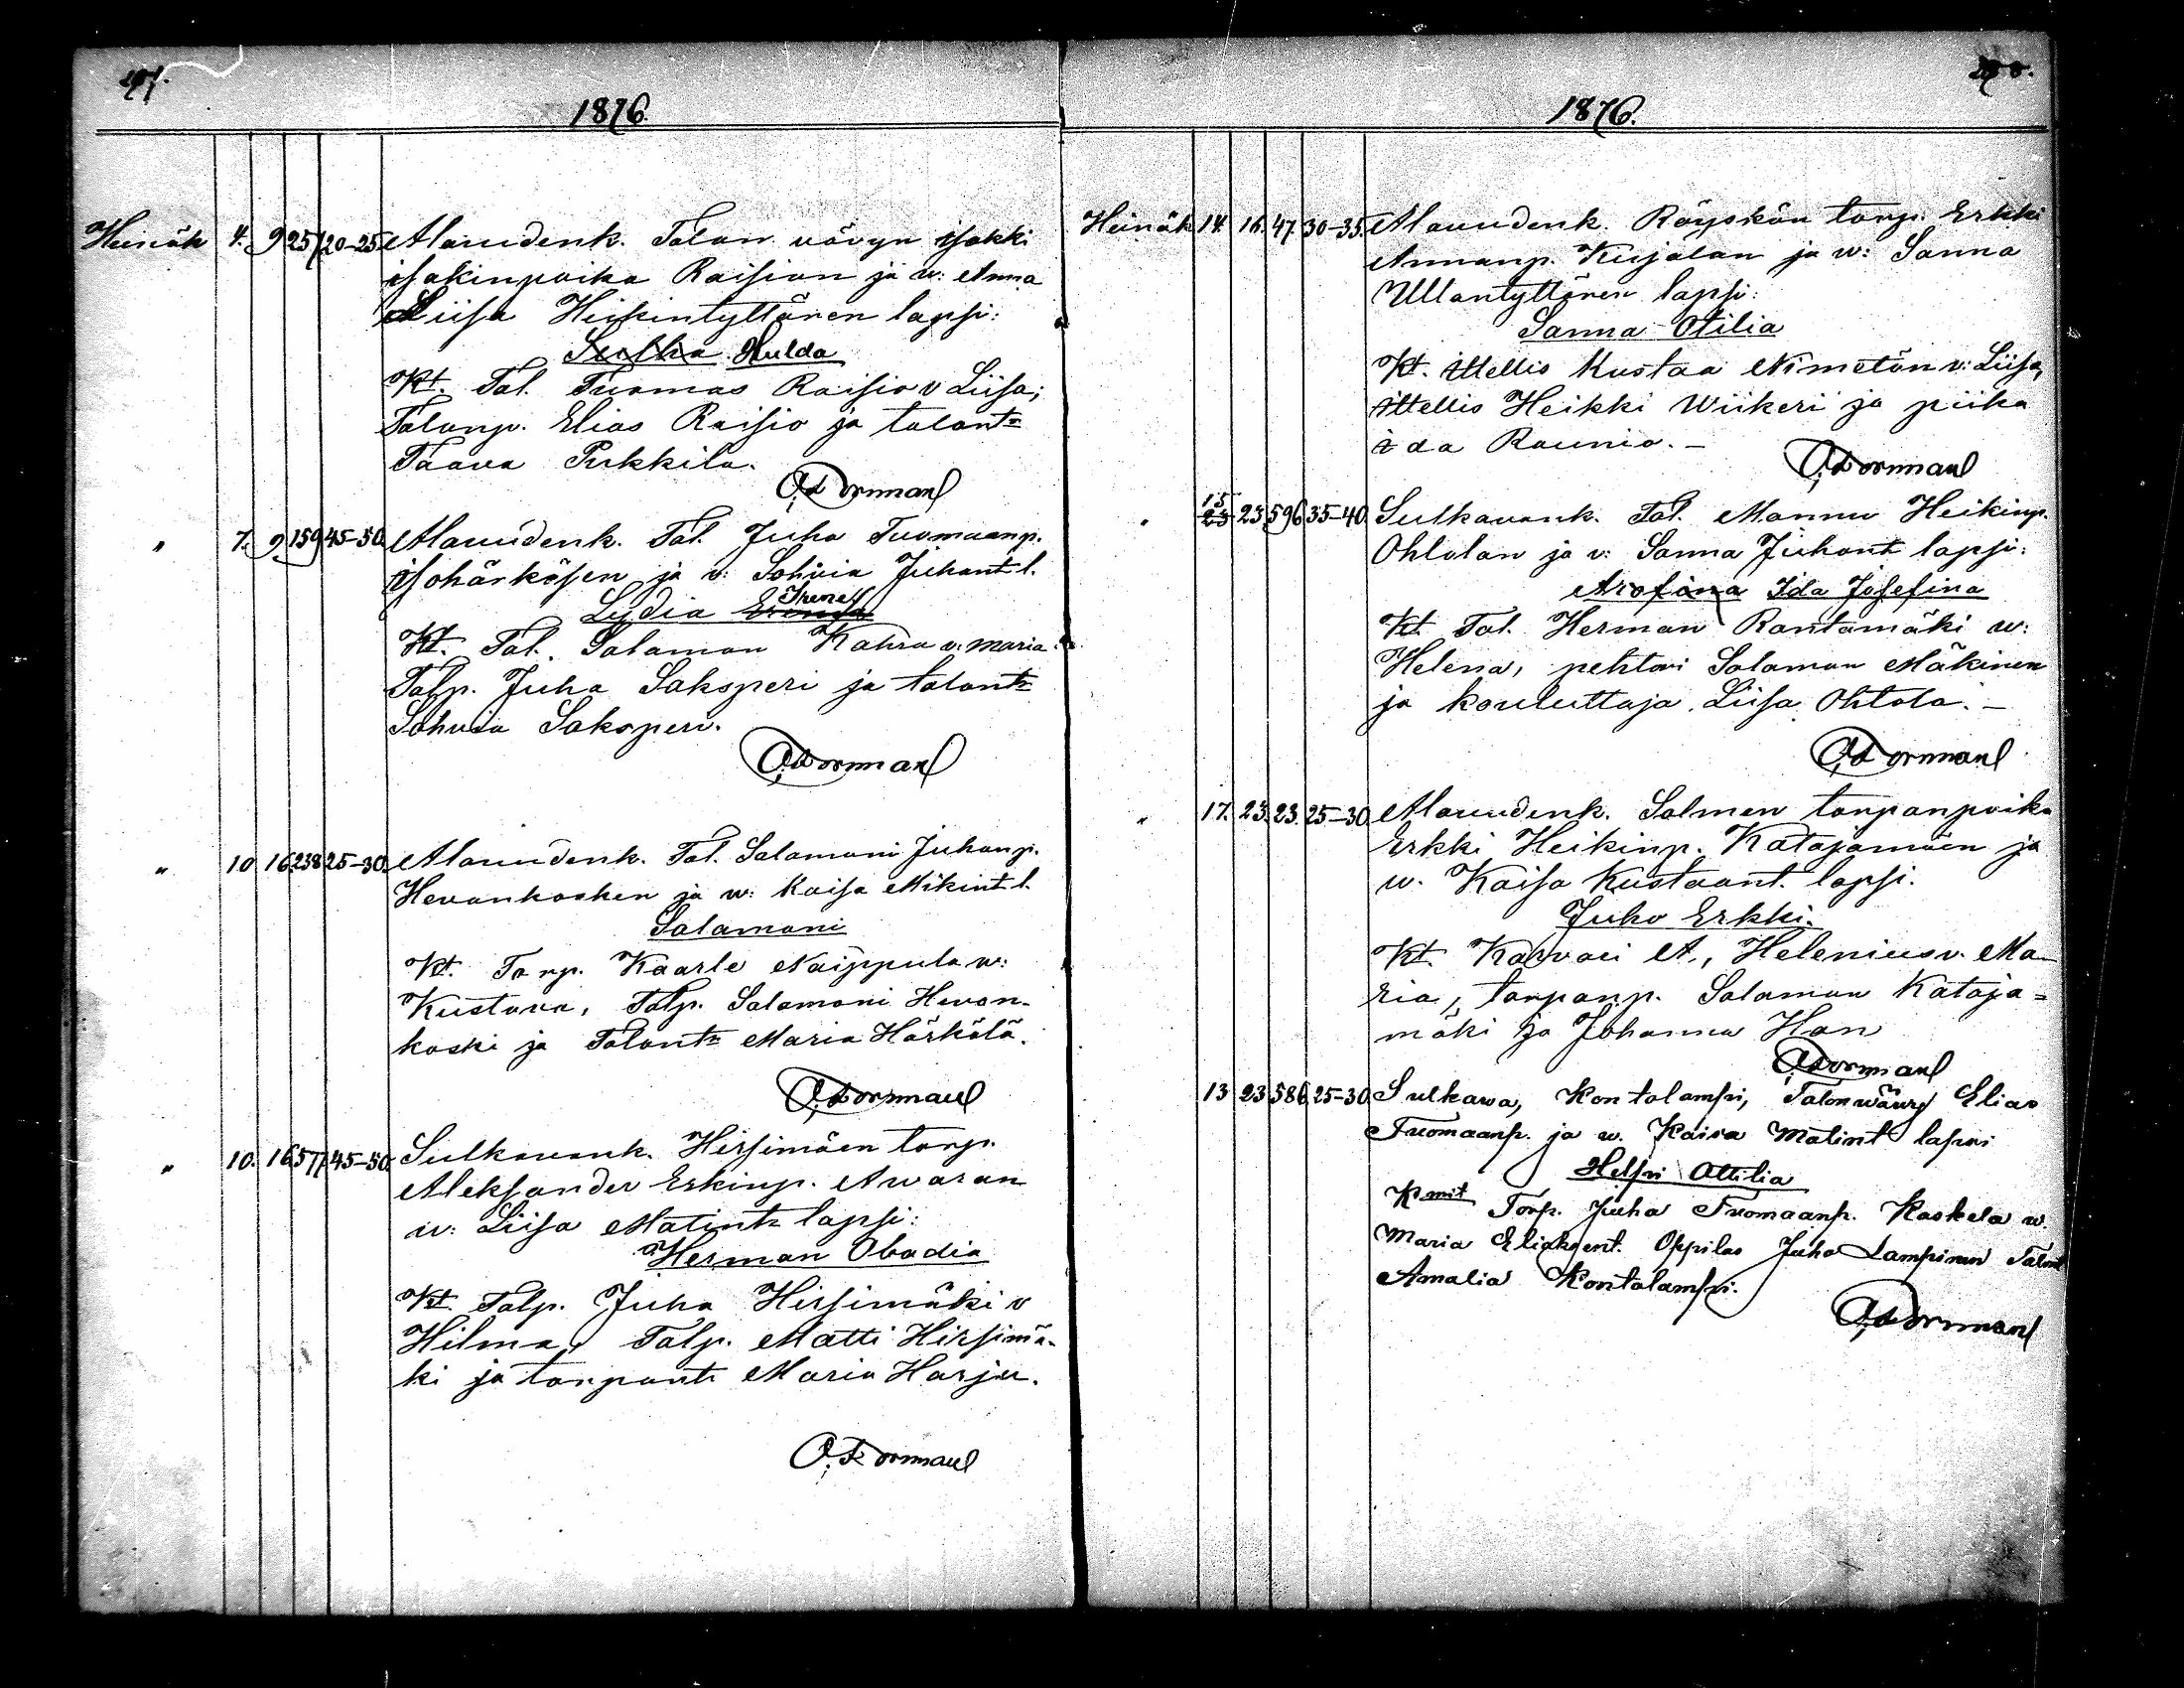 1876.
Heinäk 4. 9 257 20-25 Alavudenk. Talon vävyn Isakki
Isakinpoika Raision ja w: Anna
Liisa Heikintyttären lapsi:
Hulda
Kt. Tal. Tuomas Raisio v Liisa;
Talonp. Elias Raisio ja talont:
Taava Pirkkila.
" 7. 9 159 45-50. Alavudenk. Tal. Juha Tuomaanp.
Isohärkösen ja v: Sohvia Juhant l.
Lydia Irene
Kt. Tal. Salamon Kahra v. Maria.
Talp. Juha Saksperi ja talont:
Sohvia Saksperi.
" 10 16 238 25-30. Alavudenk. Tal. Salamoni Juhanp.
Hevonkosken ja w: Kaisa Mikint l.
Salamoni
Kt. Torp. Kaarle Näippula w:
Kustava, Talp. Salamoni Hevon-
koski ja Talont: Maria Härkölä.
" 10. 16 577 45-50. Sulkavank. Hirsimäen torp.
Aleksander Erkinp. Awaran
w: Liisa Matint: lapsi:
Herman Obadia
Kt. Talp. Juha Hirsimäki v
Hilma, Talp. Matti Hirsimä-
ki ja torpant: Maria Harju.
1876.
Heinäk 14. 16. 47. 30-35. Alavudenk. Röyskön torp. Erkki
Annanp. Kujalan ja w: Sanna
Ullantyttären lapsi:
Sanna Otilia
Kt. Itellis Kustaa Nimetön v: Liisa,
Itellis Heikki Wiikeri ja piika
Ida Raunio. —
" 15 23 596 35-40 Sulkavank. Tal. Mannu Heikinp.
Ohtolan ja v: Sanna Juhant lapsi:
Ida Josefina
Kt. Tal. Herman Rantamäki w:
Helena, pehtori Salamon Mäkinen
ja kouluttaja Liisa Ohtola. —
" 17. 23. 23. 25-30. Alavudenk. Salmen torpanpoika
Erkki Heikinp. Katajamäen ja
w. Kaisa Kustaant. lapsi.
Juho Erkki.
Kt. Karvari A., Helenius v. Ma-
ria, torpanp. Salamon Kataja-
mäki ja Johanna Han
13 23 586 25-30 Sulkawa, Kontolampi, Talonwävy Elias
Tuomaanp. ja w. Kaisa Matint lapsi
Helpi Attilia
Kmit Torp. Juha Tuomaanp. Koskela w.
Maria Eliaksent. Oppilas Juha Lampinen
Amalia Kontolampi.